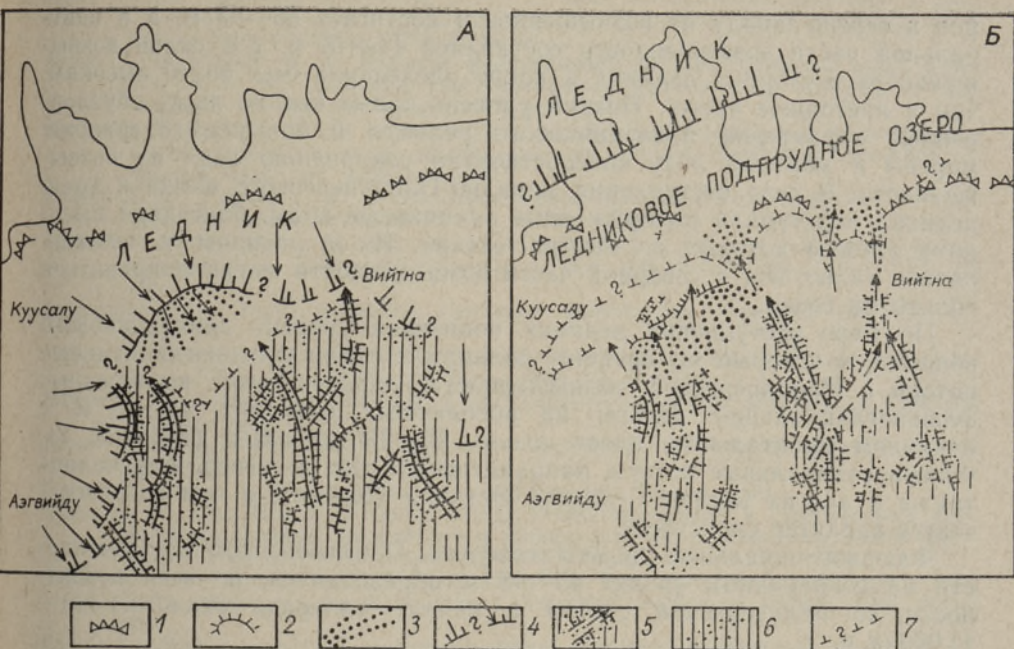 А
ЛЕДНИК
Куусалу
Вийтна
Аэгвийду
? ? ? ? ? ? ? ? ?
Б
ЛЕДНИК
?
?
ЛЕДНИКОВОЕ ПОДПРУДНОЕ ОЗЕРО
Куусалу
Вийтна
Аэгвийду
? ? ?
1 2 3 ? 4 5 6 ? 7